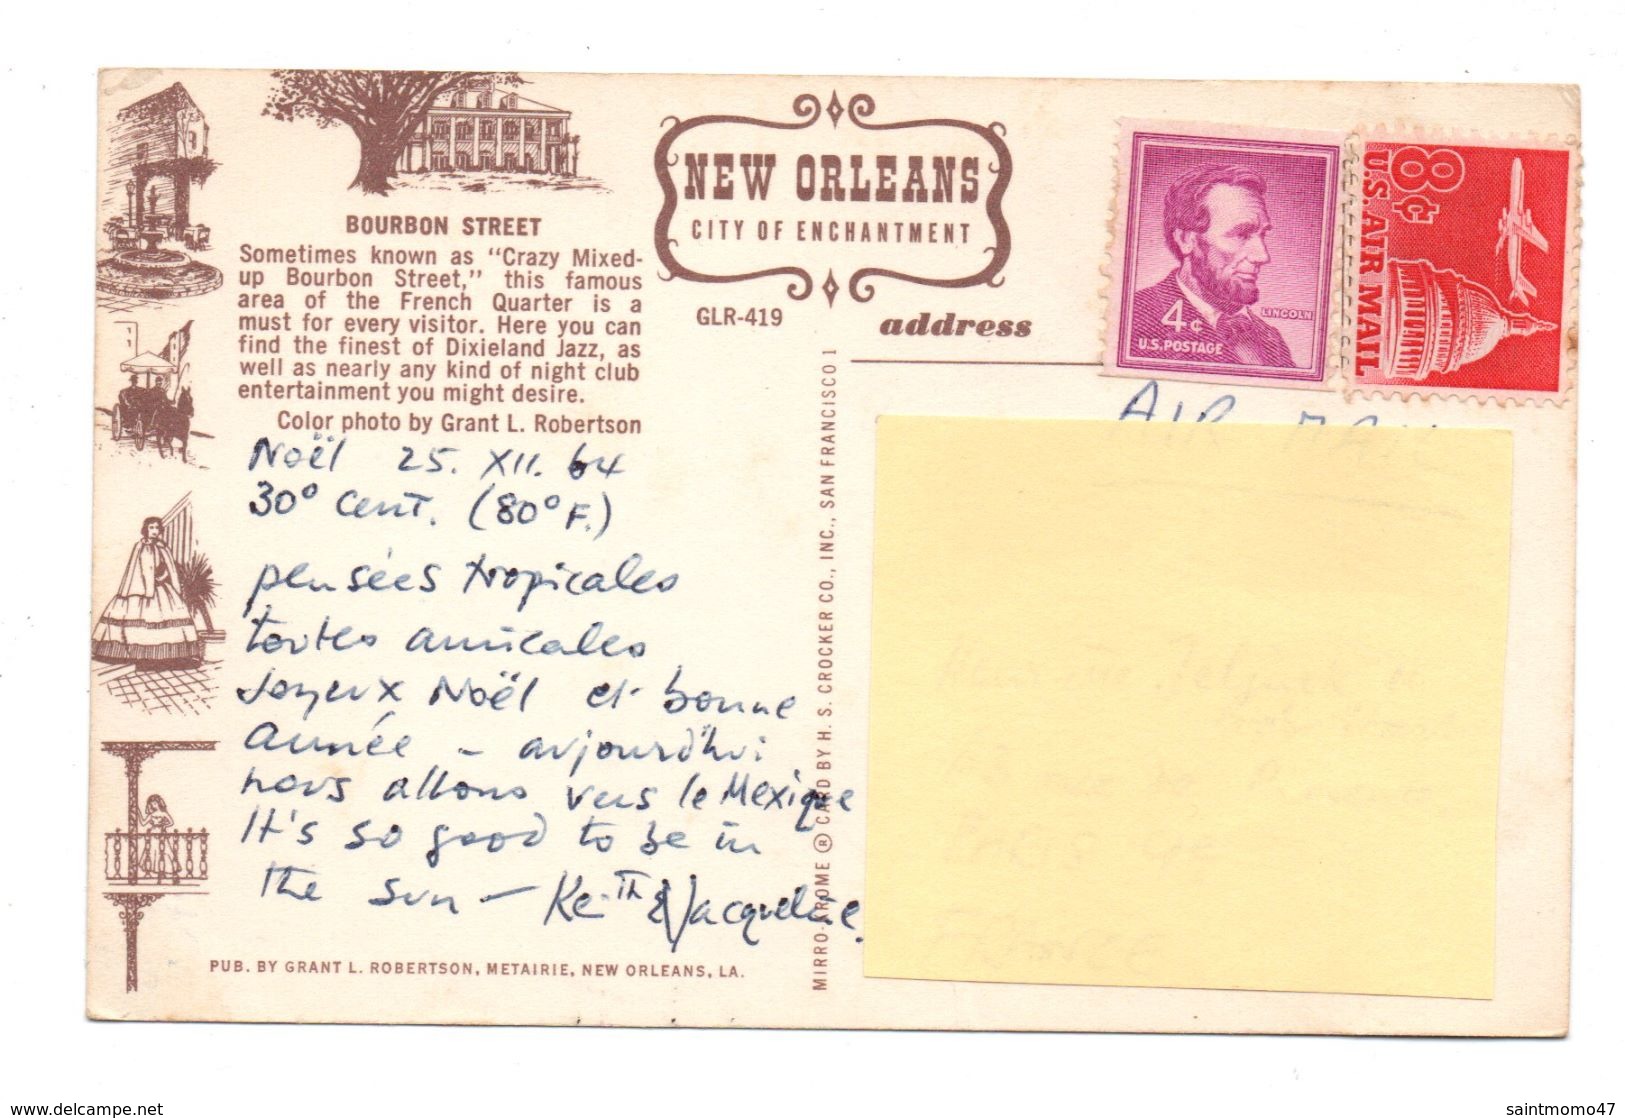 BOURBON STREET
Sometimes known as "Crazy Mixed-
up Bourbon Street," this famous
area of the French Quarter is a
must for every visitor. Here you can
find the finest of Dixieland Jazz, as
well as nearly any kind of night club
entertainment you might desire.
Color photo by Grant L. Robertson
Noël 25. XII. 64
30° cent. (80° F.)
pensées tropicales
toutes amicales
Joyeux Noël et bonne
année - aujourd'hui
nous allons vers le Mexique
It's so good to be in
the sun - Keith & Jacqueline.
PUB. BY GRANT L. ROBERTSON, METAIRIE, NEW ORLEANS, LA.
NEW ORLEANS
CITY OF ENCHANTMENT
GLR-419
address
MIRRO-KROME ® CARD BY H. S. CROCKER CO., INC., SAN FRANCISCO 1
4¢
LINCOLN
U.S. POSTAGE
8¢
U.S. AIR MAIL
AIR MAIL
delcampe.net
saintmomo47